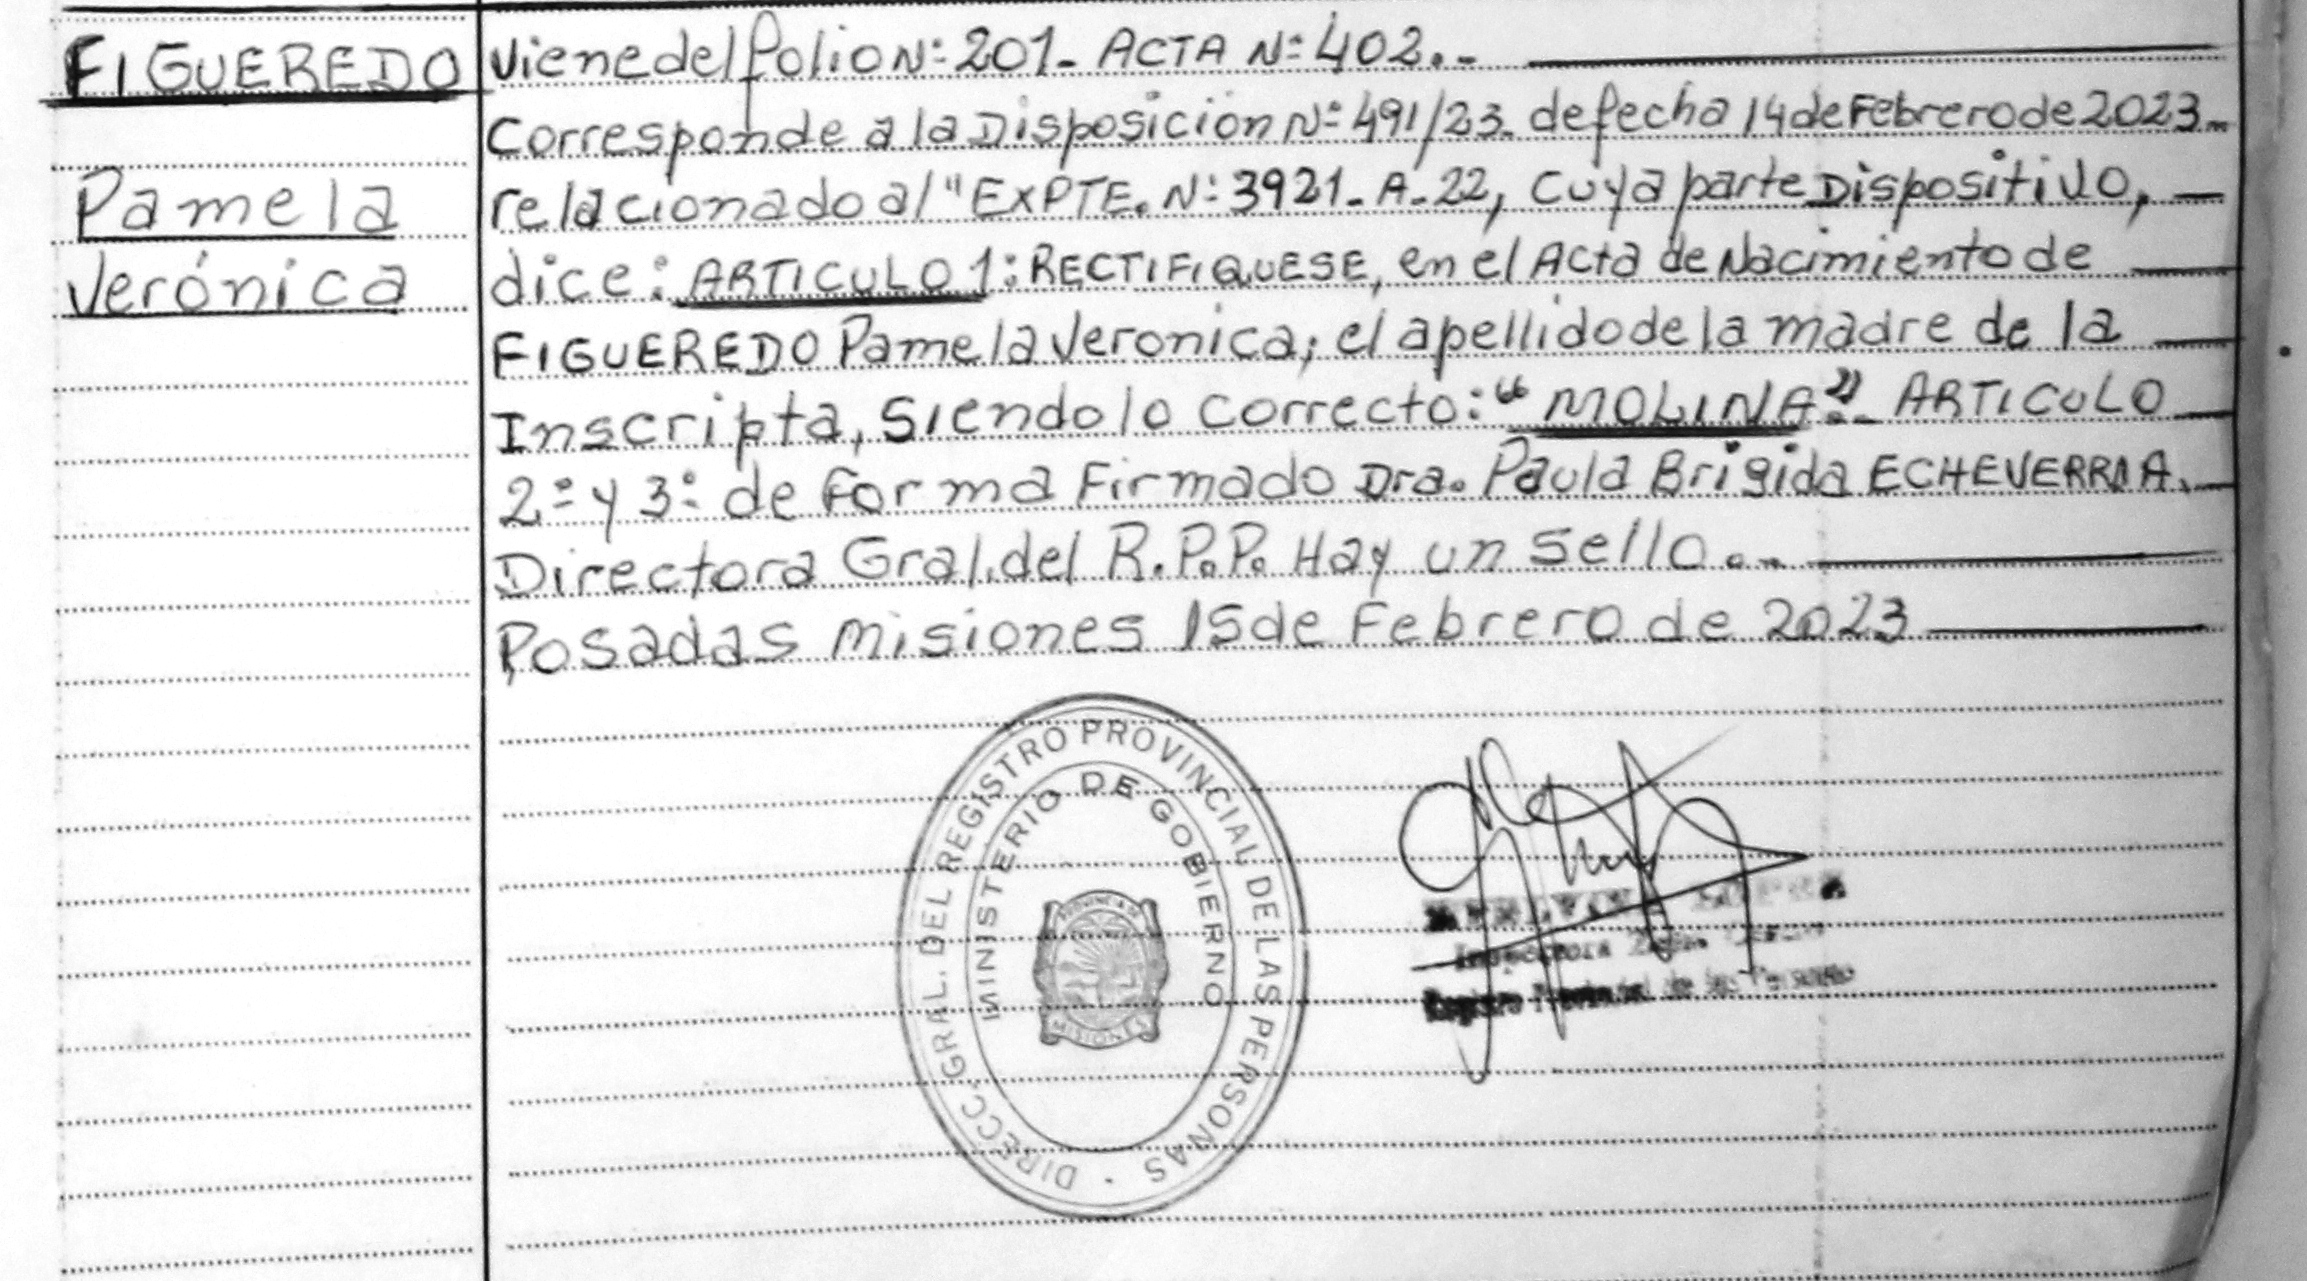 FIGUEREDO
Pamela
Verónica
Viene del folio N: 201- ACTA N: 402.-
Corresponde a la Disposición N: 491/23. de fecha 14 de Febrero de 2023.
relacionado al "EXPTE. N: 3921-A-22, cuya parte Dispositivo,
dice: ARTICULO 1: RECTIFIQUESE, en el Acta de Nacimiento de
FIGUEREDO Pamela Veronica; el apellido de la madre de la
Inscripta, siendo lo correcto: "MOLINA".- ARTICULO
2: y 3: de forma Firmado Dra. Paula Brigida ECHEVERRIA.
Directora Gral. del R.P.P. Hay un sello.-
Posadas Misiones 15 de Febrero de 2023
DIRECC. GRAL. DEL REGISTRO PROVINCIAL DE LAS PERSONAS
MINISTERIO DE GOBIERNO
PROVINCIA DE
MISIONES
Inspectora
Registro Provincial de las Personas